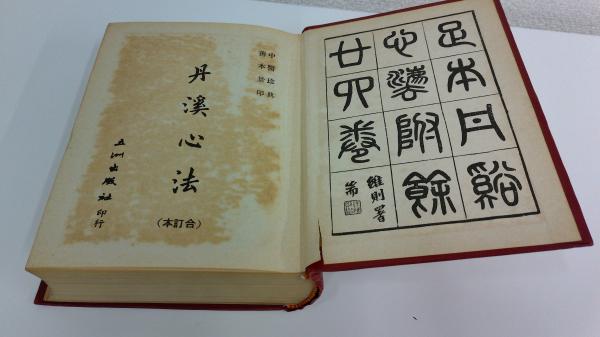 足本丹谿
心法附餘
廿四卷
維則署
耑
中醫珍典
善本景印
丹溪心法
(合訂本)
五洲出版社印行